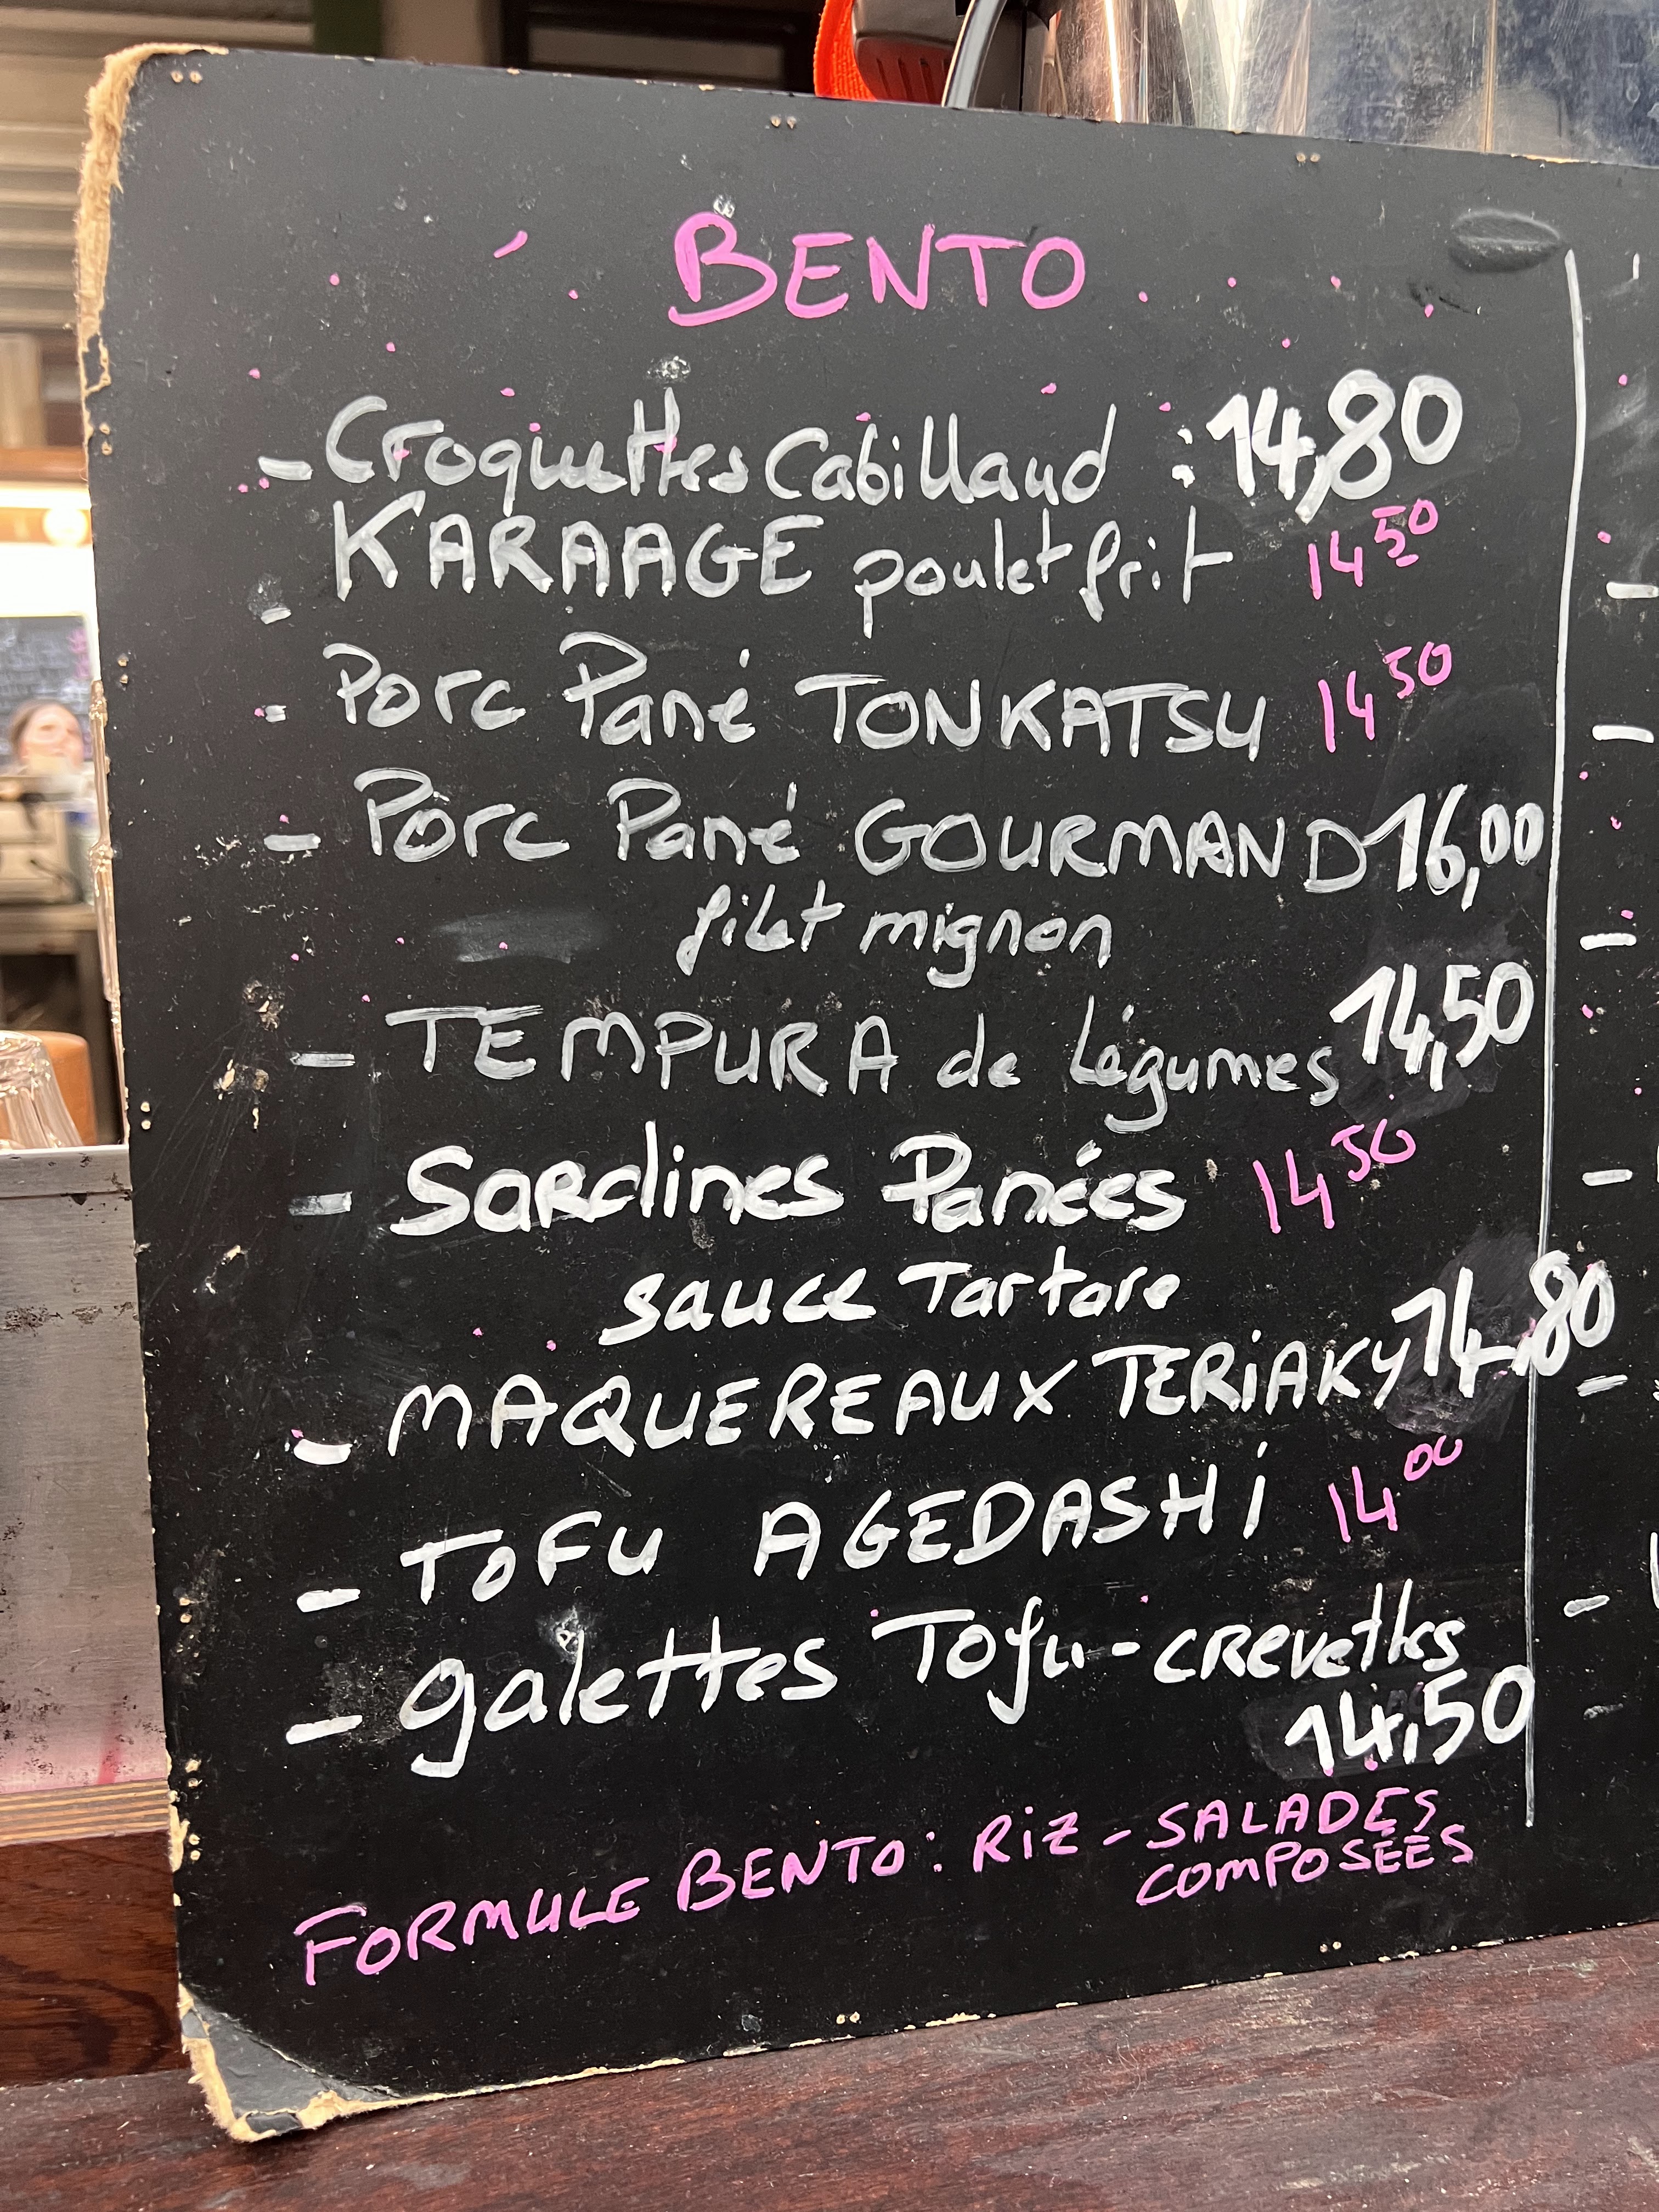 BENTO
- Croquettes Cabillaud : 14,80
- KARAAGE poulet frit 14 50
- Porc Pané TONKATSU 14 50
- Porc Pané GOURMAND 16,00
filet mignon
- TEMPURA de légumes 14,50
- Sardines Panées 14 50
sauce Tartare
- MAQUEREAUX TERiAKY 14,80
- TOFU AGEDASHi 14 00
- galettes Tofu-crevettes
14,50
FORMULE BENTO: RiZ - SALADES
COMPOSÉES